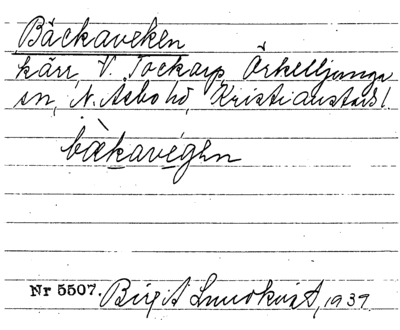 Bäckaveken
kärr, V. Tockarp, Örkelljunga
sn, N. Åsbo hd, Kristianstads l.
bækavégen
Nr 5507. Birgit Lundkvist, 1937